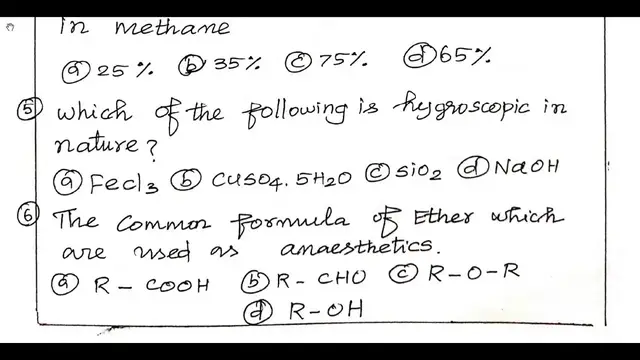 in methane
ⓐ 25% ⓑ 35% ⓒ 75% ⓓ 65%
⑤ which of the following is hygroscopic in
nature?
ⓐ Fecl3 ⓑ CuSO4.5H2O ⓒ SiO2 ⓓ NaOH
⑥ The common formula of Ether which
are used as anaesthetics.
ⓐ R - COOH ⓑ R - CHO ⓒ R-O-R
ⓓ R-OH